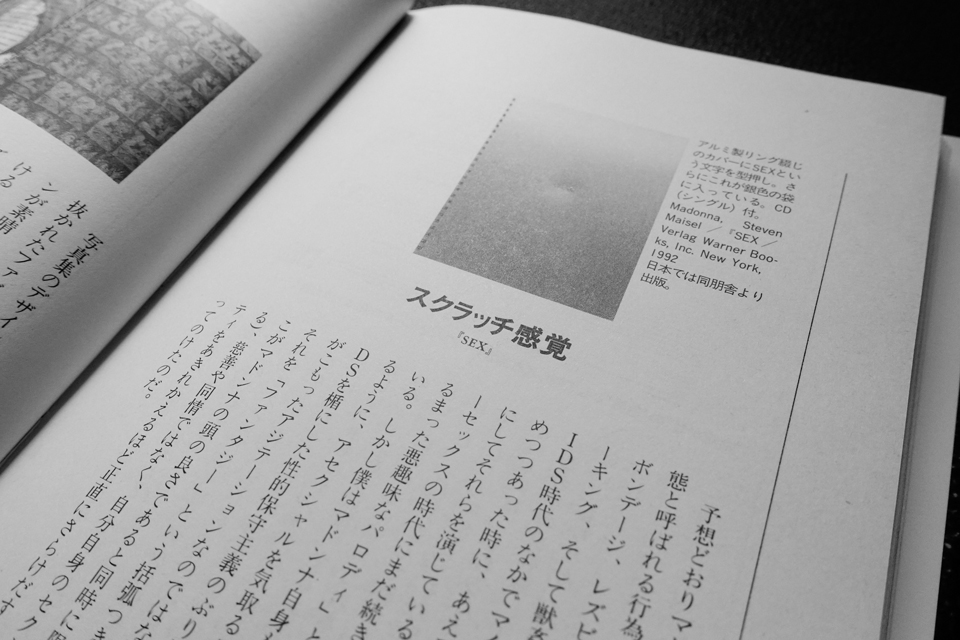 写真集のデザイ
抜かれたファ
ンが素晴
ける
アルミ製リング綴じ
のカバーにSEXとい
う文字を型押し。さ
らにこれが銀色の袋
に入っている。CD
(シングル)付。
Madonna, Steven
Maisel ／『SEX ／
Verlag Warner Boo-
ks, Inc. New York,
1992
日本では同朋舎より
出版。
スクラッチ感覚
『SEX』
予想どおりマ
態と呼ばれる行為
ボンデージ、レズビ
ーキング、そして獣
IDS時代のなかでマ
めつつあった時に、あえ
にしてそれらを演じている
ーセックスの時代にまだ続き
るまった悪趣味なパロディ
いる。しかし僕はマドンナ
るように、アセクシャルを気取る
DSを楯にした性的保守主義の
がこもったアジテーションなので
それを「ファンタジー」という括弧つき
こがマドンナの頭の良さであると同時に
る)、慈善や同情ではなく、自分自身のセク
ティをあきれかえるほど正直にさらけだす
ってのけたのだ。